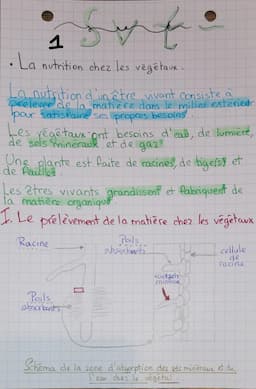 SVT
1
• La nutrition chez les végétaux.
La nutrition d'un être vivant consiste à
prélever de la matière dans le milieu extérieur
pour satisfaire ses propres besoins
Les végétaux ont besoins d'eau, de lumière,
de sels minéraux et de gaz
Une plante est faite de racines, de tige(s) et
de feuilles
Les êtres vivants grandissent et fabriquent de
la matière organique
I. Le prélèvement de la matière chez les végétaux
Racine
Poils
absorbants
cellule
de racine
Poils
absorbants
Schéma de la zone d'absorption des sels minéraux et de
l'eau chez le végétal